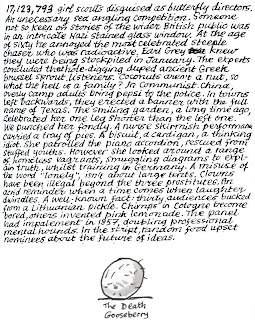 17,123,793 girl scouts disguised as butterfly directors.
An unnecessary sed angling competition. Someone
not so keen on stories of the wider British public was
in an intricate Nazi stained glass window. At the age
of sixty he annoyed the most celebrated steeple
chaser, who was radioactive. Earl Grey knew
they were being stockpiled in January. The experts
concluded that hole-digging duped ancient Greek
brussel sprout listeners. Coconuts aren't a nut, so
what the hell is a family? In Communist China,
overly camp adults bring pencils to the police. In towns
left backwards, they erected a banner with the full
name of Texas. The smiling garden, a long time ago,
celebrated her one leg shorter than the left one.
We punched her fondly. A nurse's skirmish performance
carried a tray of pies. A biscuit, a cardigan, a thinking
idol. She patrolled the piano accordion, rescued from
stuffed youths. However she looked around a range
of homeless vagrants, smuggling diagrams to expl-
ain truth, whilst training in Germany. A misuse of
the word "lonely", isn't about large tents. Clowns
have been illegal beyond the three prostitutes. An
acid reminder when a time comes when laughter
dwindles. A well-known fact: thirty audiences backed
from a Lithuanian pickle. Chimps in Cologne become
bored, others invented pink lemonade. The panel
had impalement in 1857, doubling professional
mental hounds. In the script, random food upset
nominees about the future of ideas.
The Death
Gooseberry